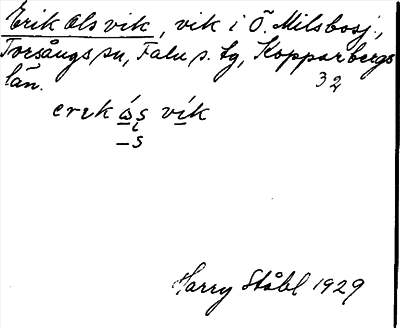 Erik Ols vik, vik i Ö. Milsbosj.,
Torsångs sn, Falu s. lg, Kopparbergs
län. 32
erik ås vík
– s
Harry Ståhl 1929